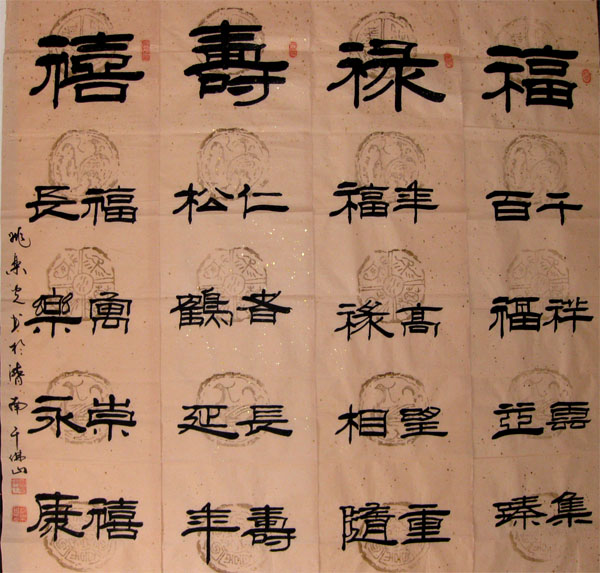 福
千祥雲集
百福並臻
禄
年高望重
福祿相隨
壽
仁者長壽
松鶴延年
禧
福寓崇禧
長樂永康
姚光书於濟南千佛山